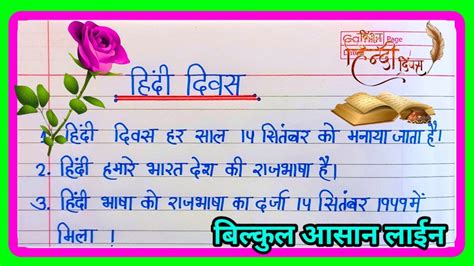 हिन्दी
दिवस
हिंदी दिवस
१. हिंदी दिवस हर साल १४ सितंबर को मनाया जाता है।
२. हिंदी हमारे भारत देश की राजभाषा है।
३. हिंदी भाषा को राजभाषा का दर्जा १४ सितंबर १९४९ में
मिला !
बिल्कुल आसान लाईन